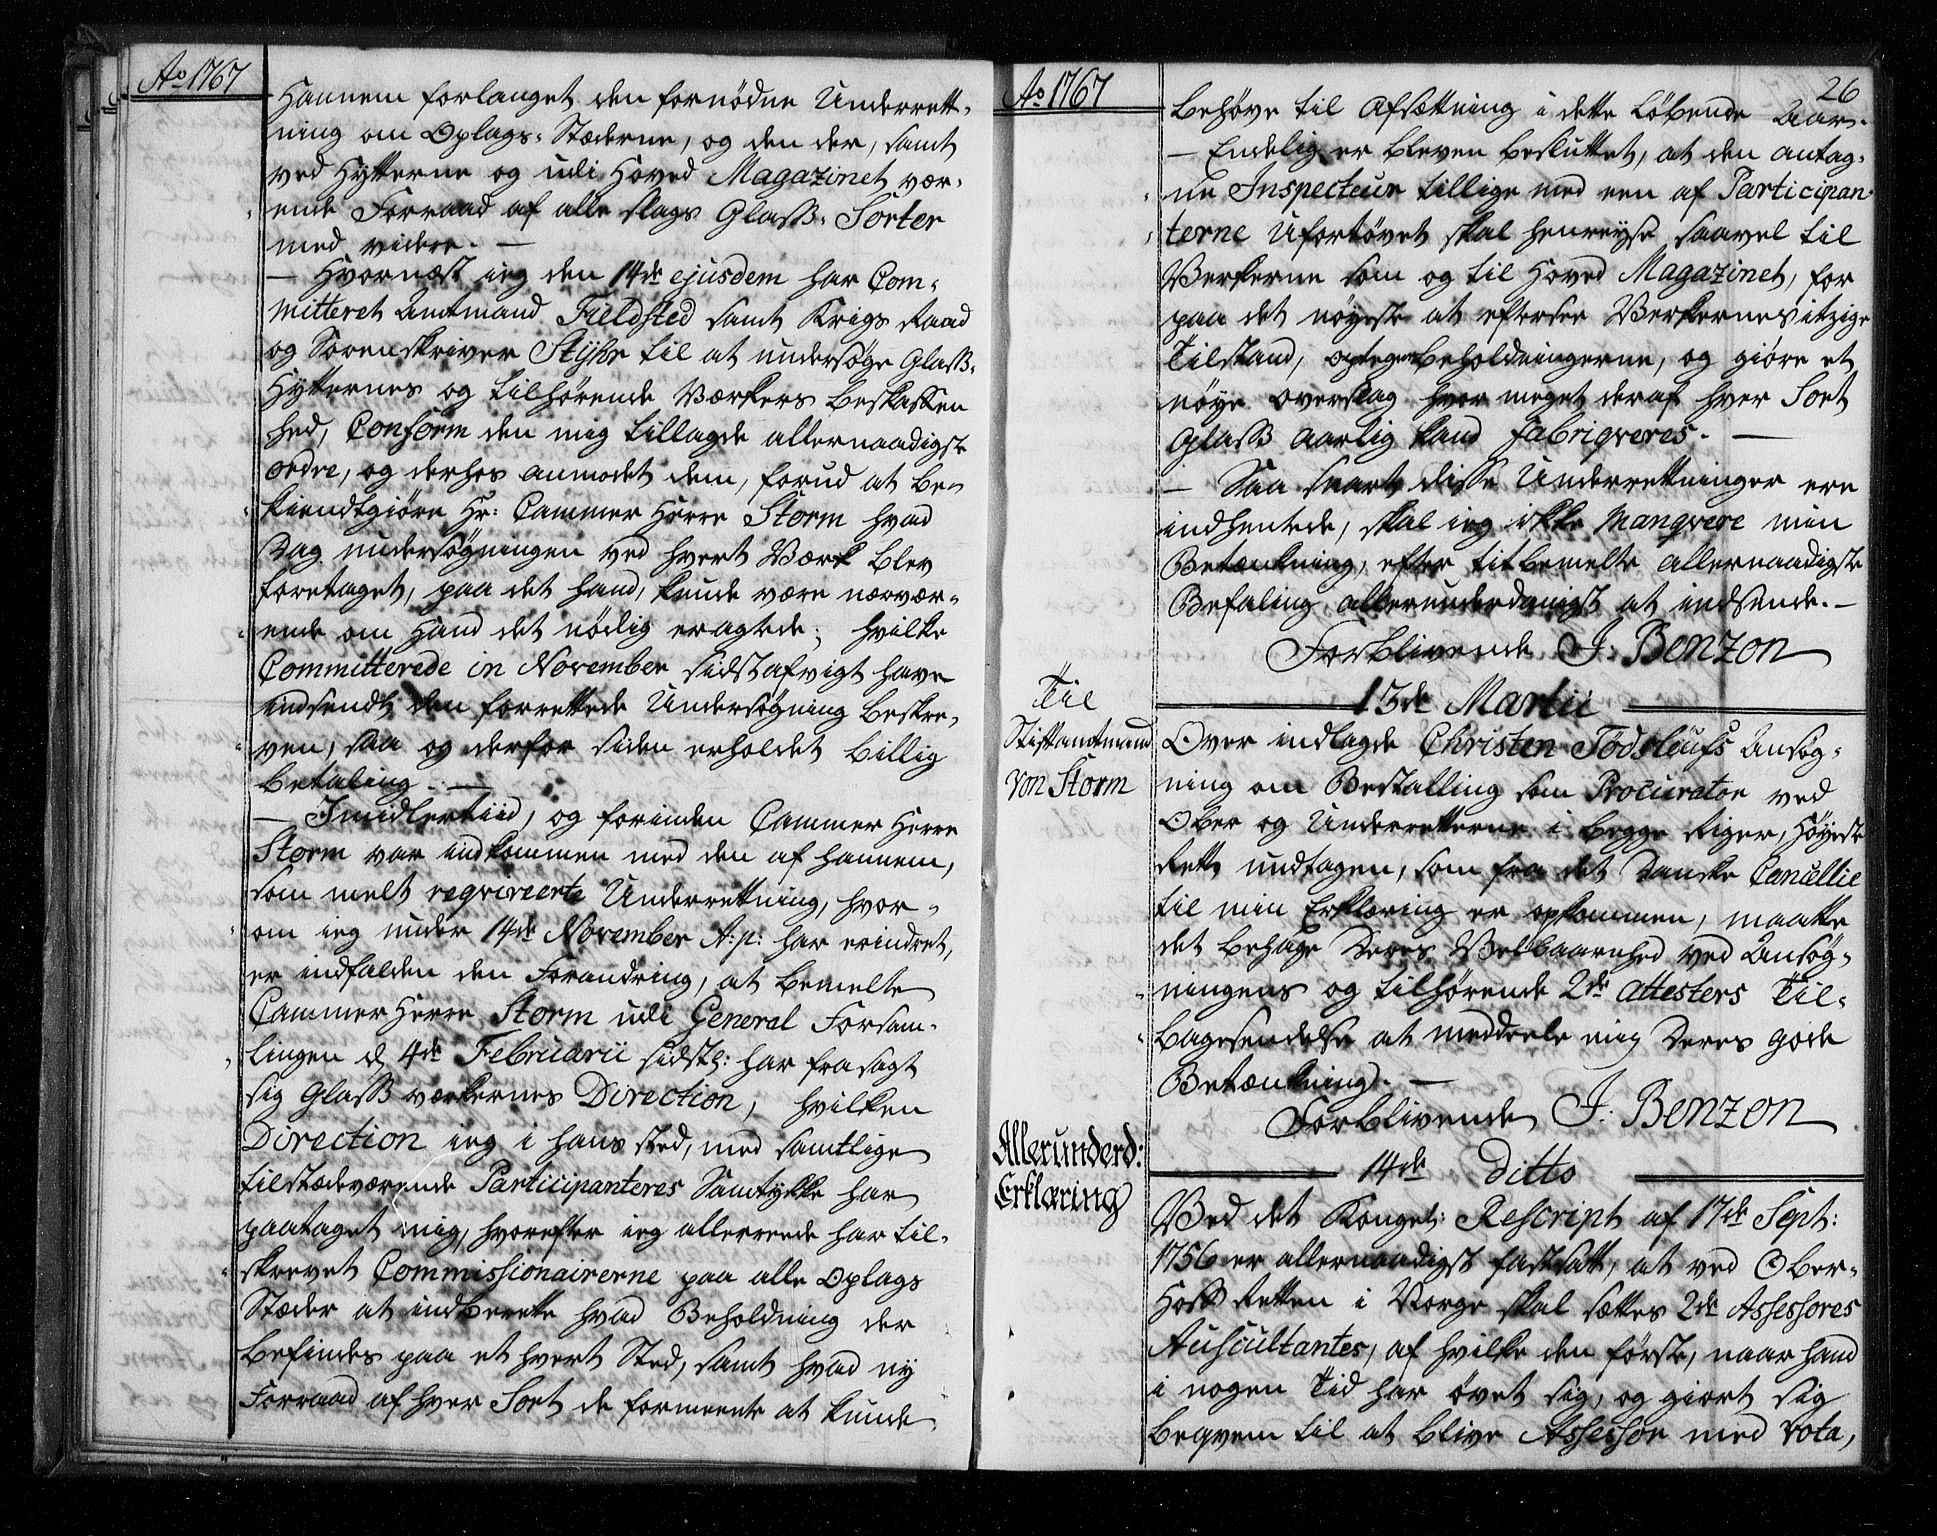 Ao 1767
Hannem forlanget den fornødne Underrett-
ning om Oplags-Stæderne, og den der, samt
ved Hytterne og udi Hoved Magazinet vær-
ende Forraad af alle slags Glass-Sorter
med videre. —
— Hvornæst ieg den 14de ejusdem har Com-
mitteret Amtmand Fieldsted samt Krigs Raad
og Sorenskriver Stijhr til at undersøge Glass-
Hytternes og tilhørende Værkers Beskaffen
hed, Conform den mig tillagde allernaadigste
ordre, og derhos anmodet dem, forud at be-
kiendtgiøre Hr: Cammer Herre Storm hvad
Dag undersøgningen ved hvert Værk blev
foretaget, paa det hand, kunde være nærvær-
ende om Hand det nødig eragtede; hvilke
Committerede in November sidstafvigt have
indsendt den forrettede Undersøgning beskre-
ven, saa og derfor siden erholdet billig
betaling. —
— Imidlertiid, og forinden Cammer Herre
Storm var indkommen med den af hannem,
som melt reqvireerte Underrettning, hvor-
om ieg under 14de November A: p: har erindret,
er indfalden den Forandring, at bemelte
Cammer Herre Storm udi General Forsam-
lingen d 4de Februarii sidstl: har frasagt
sig Glass værkernes Direction, hvilken
Direction ieg i hans sted, med samtlige
tilstædeværende Participanteres Samtykke har
paataget mig, hvorefter ieg allerreede har til-
skrevet Commissionairerne paa alle Oplags
Stæder at indberette hvad Beholdning der
befindes paa et hvert Sted, samt hvad ny
Forraad af hver Sort de formeente at kunde
Ao 1767
26
behøve til Afsættning i dette Løbende Aar.
— Endelig er bleven besluttet, at den antag-
ne Inspecteur tillige med een af Participan-
terne Ufortøvet skal henreyse saavel til
Verkerne som og til Hoved Magazinet, for
paa det nøyeste at eftersee Verkernes itzige
Tilstand, optegne beholdningerne, og giøre et
nøye overslag hvor meget deraf hver Sort
Glass Aarlig kand fabriqveres. —
— Saa snart disse Underrettninger ere
indhentede, skal ieg ikke Manqvere min
Betænkning, efter titbemelte allernaadigste
Befaling allerunderdanigst at indsende. —
Forblivende J: Benzon
13de Martii
Til
Stiftamtmand
von Storm
Over indlagde Christen Tødsleufs Ansøg-
ning om Bestalling som Procurator ved
Ober og Underretterne i begge Riger, Høyeste
Rett undtagen, som fra det Danske Cancellie
til min Erklæring er opkommen, maatte
det behage Deres Velbaarnhed ved Ansøg-
ningens og tilhørende 2de attesters Til-
bagesendelse at meddeele mig Deres gode
Betænkning. —
Forblivende J: Benzon
14de Ditto
Allerunderd:
Erklæring
Ved det Kongel: Rescript af 17de Sept:
1756 er allernaadigst fastsatt, at ved Ober-
Hoff Retten i Norge skal sættes 2de Assessores
Auscultantes, af hvilke den første, naar hand
i nogen Tid har øvet sig, og giort sig
beqvem til at blive Assessor med vota,